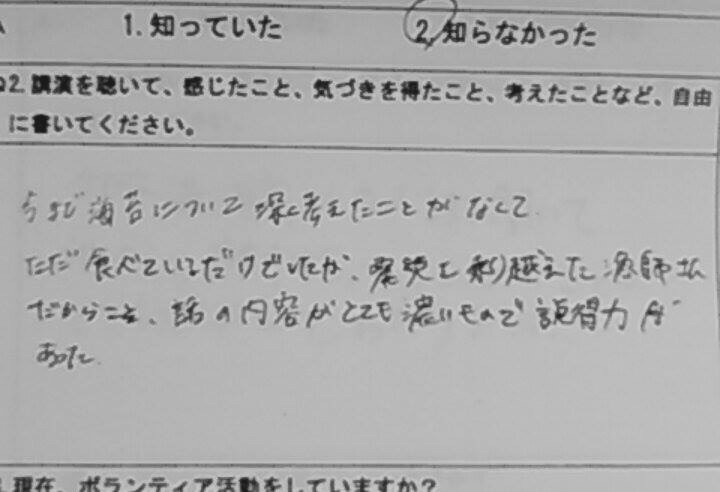 1. 知っていた 2. 知らなかった
2. 講演を聴いて、感じたこと、気づきを得たこと、考えたことなど、自由
に書いてください。
今まで海苔について深く考えたことがなくて
ただ食べていただけでしたが、震災を乗り越えた漁師さん
だからこそ、話の内容がとても濃いもので説得力が
あった。
現在、ボランティア活動をしていますか?